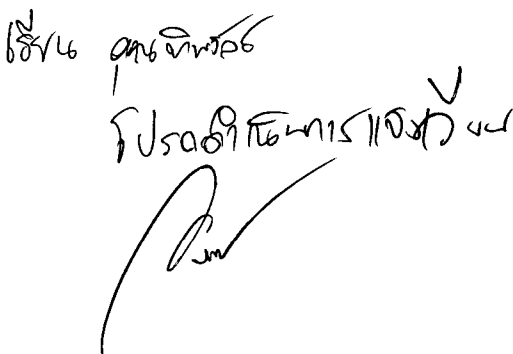 เรียน คุณทิพวัลย์
โปรดดำเนินการแจ้งเวียน